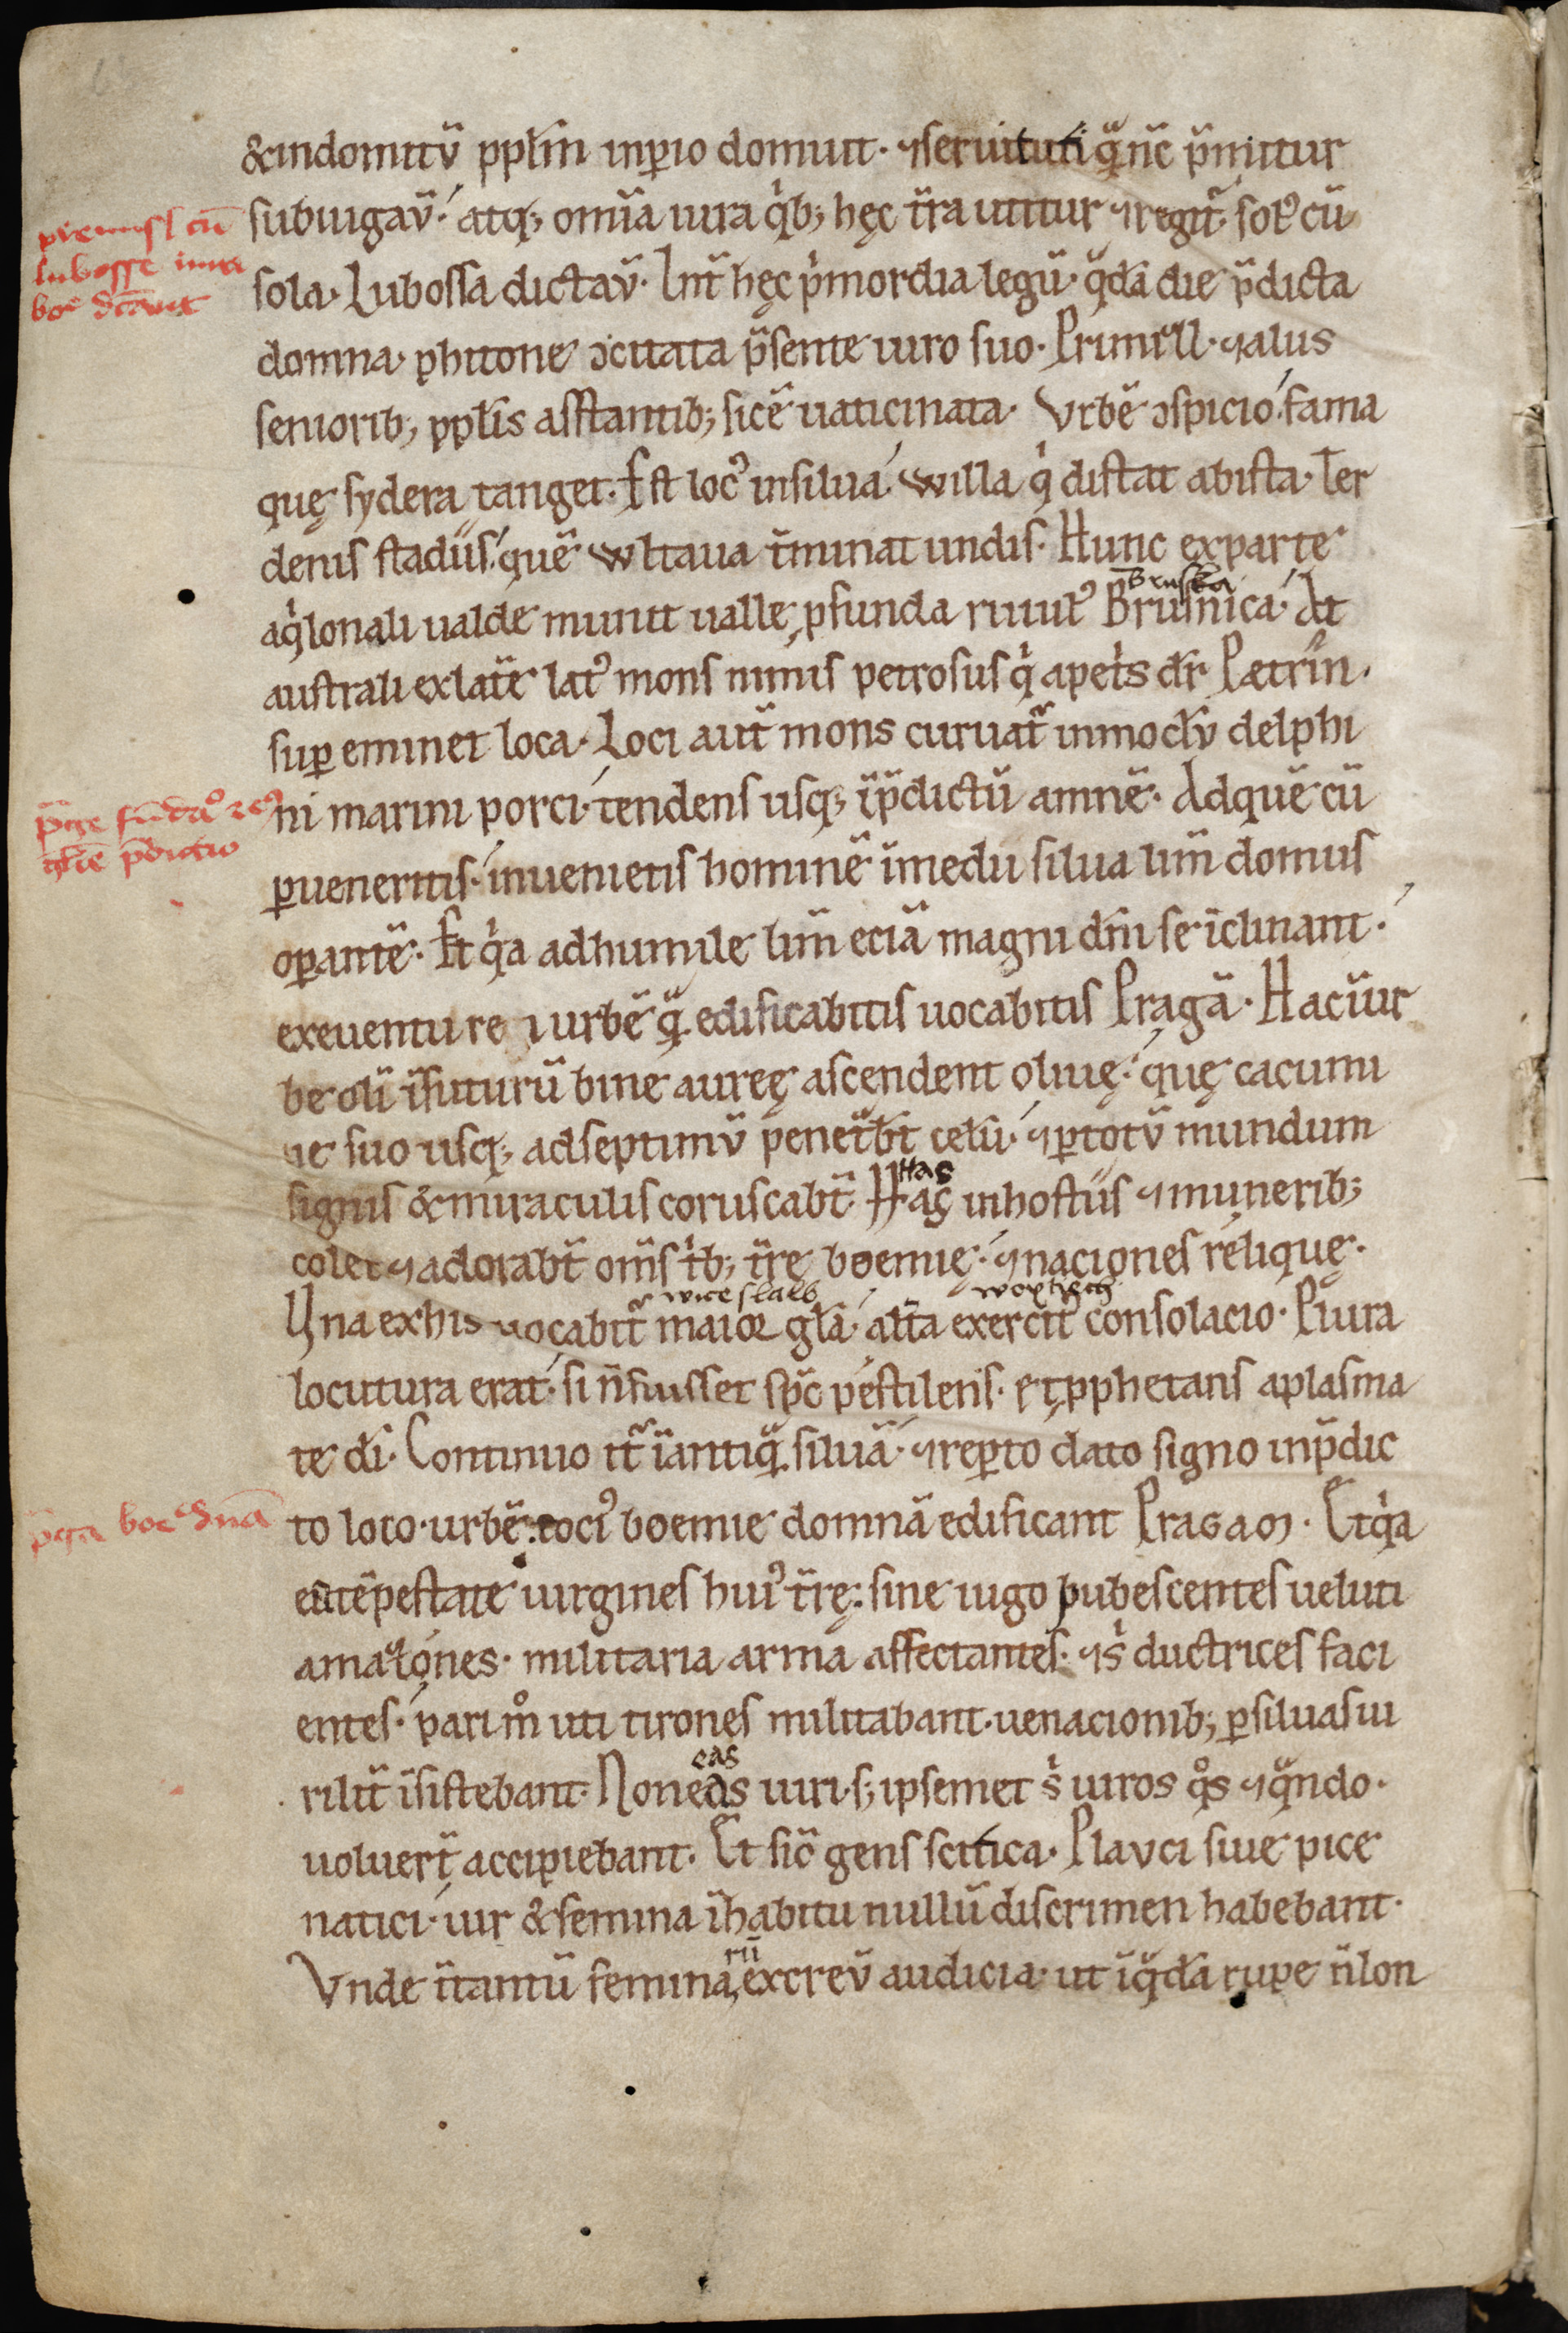 &indomitū pplm̄ inꝑio domuit · ⁊seruituti q̄ nc̄ p̄mittur
premisl cū
lubosse iura
boe dictāuit
subiugauͥ · atq; om̄ia iura qͥb; hęc t̄ra utitur ⁊regit᷑ · solꝰ cū
sola · Lubossa dictauͥ · Int̄ hęc pͥmordia legū · qͣdā die p̄dicta
domna · phitone ɔcitata p̄sente uiro suo · Primizl · ⁊aliis
seniorib; pplis̄ asstantib; sic ē uaticinata · Vrbē ɔspicio · fama
quę sydera tanget · Est locꝰ insilua · willa qͥ distat abista · Ter
denis stadiis · quē wltaua t̄minat undis · Hunc exparte
bruska
aqͥlonali ualde munit ualle ꝓfunda riuulꝰ Brusnica · At
australi exlat̄e latꝰ mons nimis petrosus qͥ apet̄s dr̄ Petrin ·
suꝑeminet loca · Loci aut̄ mons curuat᷑ inmodū delphi
p̄ge fūdaͦ ⁊ eiꝰ
gl̄ie p̄dictio
ni marini porci · tendens usq; ī p̄dictū amnē · Adquē cū
ꝑueneritis · inuenietis hominē īmedii silua lim̄ domus
oꝑantē · Et qͥa adhumile lim̄ eciā magni dn̄i se īclinant ·
exeuentu rei urbē qͣ edificabitis uocabitis Pragā · Hac ī ur
be olī īfuturū bine aureę ascendent oliuę · quę cacumi
ne suo usq; adseptimū penet̄bt̄ celū · ⁊ꝑtotū mundum
Has
signis &miraculis coruscabt̄ · Hac inhostiis ⁊muneribꝫ
colet ⁊adorabt̄ om̄s t̄b; t̄re boemie · ⁊naciones relique ·
wiceslaus woytiech
Una exhis uocabit᷑ maior gl̄a · alt̄a exercit᷑ consolacio · Plura
locutura erat · si n̄ fuisset sp̄c pestilens · et ꝓphetans aplasma
te dī · Continuo it᷑ īantiqͣ siluā · ⁊reꝑto dato signo inp̄dic
p̄ga boe dn̄a
to loco · urbē · tociꝰ boemie domnā edificant Pragam · Et qͥa
eatēpestate uirgines huiꝰ t̄rę · sine iugo pubescentes ueluti
amazones · militaria arma affectantes · ⁊sͥ ductrices faci
entes · pari mͦ uti tirones militabant · uenacionib; ꝑ siluas ui
eas
rilit̄ īsistebant · Non eas uiri · s; ipsemet sͥ uiros qͦs ⁊qͣndo ·
uoluert̄ accipiebant · Et sic gens scitica · Plauci siue pice
natici · uir &femina īhabitu nullū discrimen habebant ·
rū
Vnde ī tantū femina excreuͥ audicia · ut ī qͣdā rupe n̄ lon